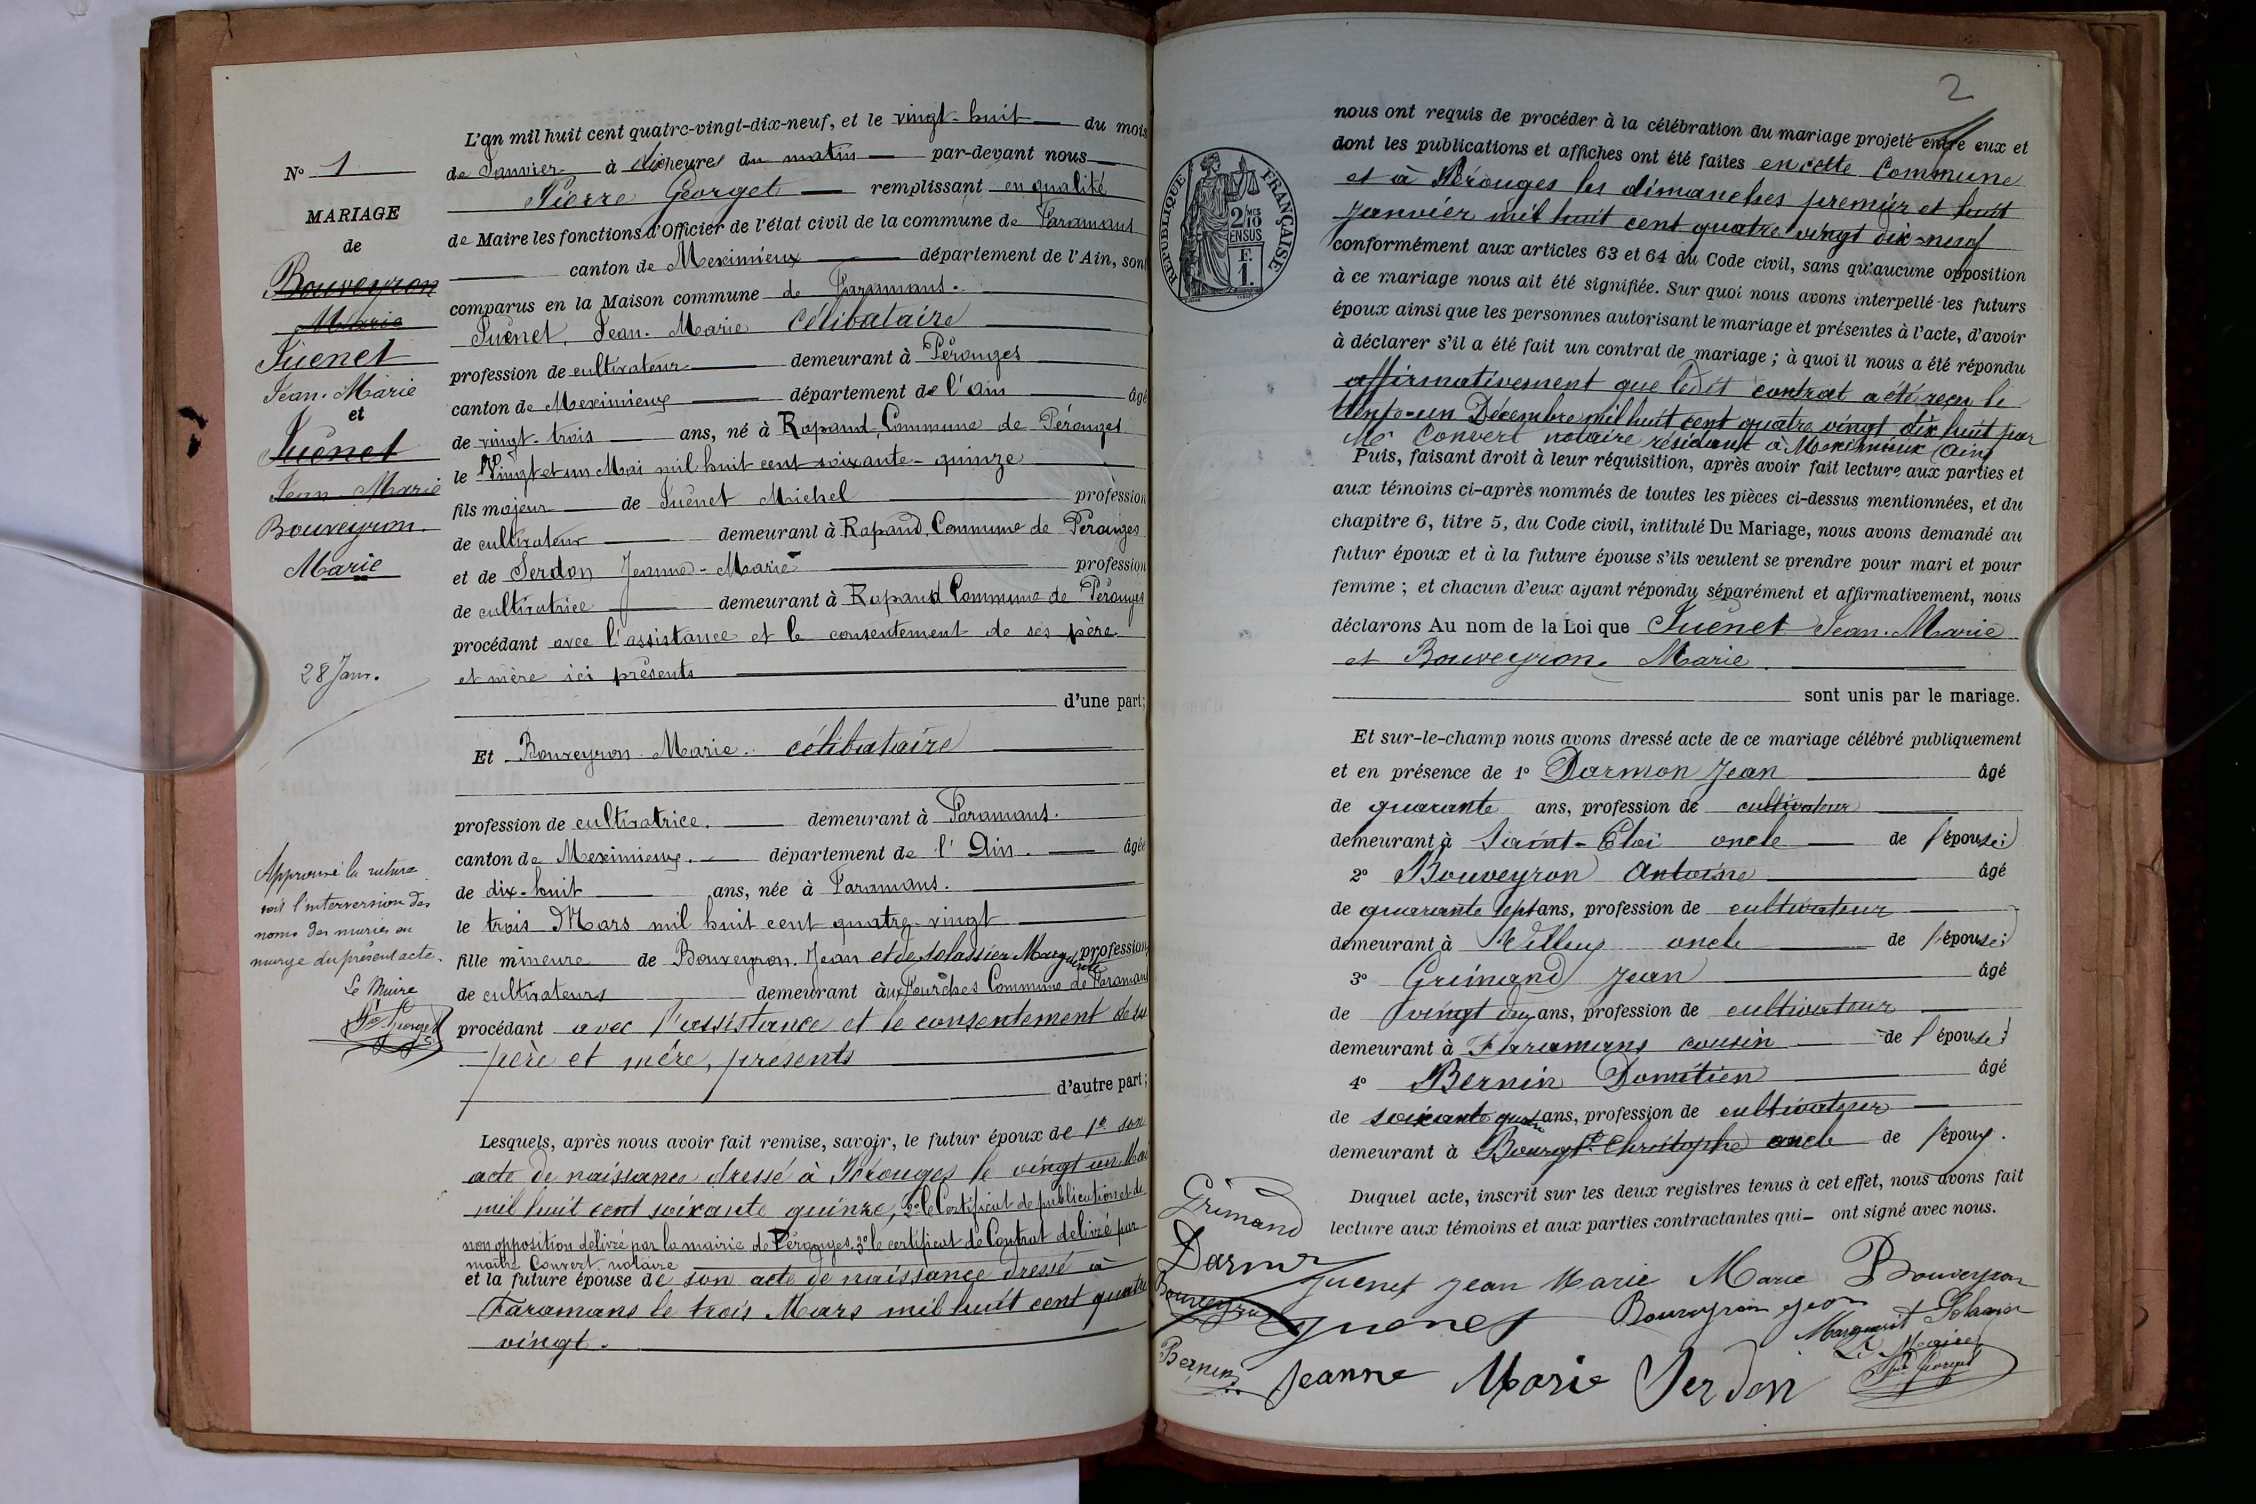 N° 1
MARIAGE
de
Bouveyron
Marie
Juenet
Jean-Marie
et
Juënet
Jean Marie
Bouveyron
Marie
28 Janv.
Approuvé la rature
soit l'interversion des
noms des mariés en
marge du présent acte.
Le Maire
Pre Georget
L'an mil huit cent quatre-vingt-dix-neuf, et le vingt-huit du mois
de Janvier à dix heures du matin par-devant nous
Pierre Georget remplissant en qualité
de Maire les fonctions d'Officier de l'état civil de la commune de Faramans
canton de Meximieux département de l'Ain, sont
comparus en la Maison commune de Faramans.
Juënet, Jean-Marie célibataire
profession de cultivateur demeurant à Pérouges
canton de Meximieux département de l'Ain âgé
de vingt-trois ans, né à Rapand, Commune de Pérouges
le Vingt et un Mai mil huit cent soixante-quinze
fils majeur de Juënet Michel profession
de cultivateur demeurant à Rapand, Commune de Pérouges
et de Serdon Jeanne-Marie profession
de cultivatrice demeurant à Rapand Commune de Pérouges
procédant avec l'assistance et le consentement de ses père
et mère ici présents
d'une part;
Et Bouveyron Marie. célibataire
profession de cultivatrice. demeurant à Faramans.
canton de Meximieux. département de l'Ain. âgée
de dix-huit ans, née à Faramans.
le trois Mars mil huit cent quatre-vingt
fille mineure de Bouveyron Jean et de Solassier Marguerite profession
de cultivateurs demeurant aux Fourches Commune de Faramans
procédant avec l'assistance et le consentement de ses
père et mère, présents
d'autre part;
Lesquels, après nous avoir fait remise, savoir, le futur époux de 1° son
acte de naissance dressé à Pérouges le vingt un Mai
mil huit cent soixante quinze, 2° le Certificat de publication et de
non opposition délivré par la mairie de Pérouges, 3° le certificat de Contrat délivré par
maître Convert notaire
et la future épouse de son acte de naissance dressé à
Faramans le trois Mars mil huit cent quatre
vingt.
2
RÉPUBLIQUE FRANÇAISE
2/10MES
EN SUS
F.
1.
nous ont requis de procéder à la célébration du mariage projeté entre eux et
dont les publications et affiches ont été faites en cette Commune
et à Pérouges les dimanches premier et huit
janvier mil huit cent quatre vingt dix-neuf
conformément aux articles 63 et 64 du Code civil, sans qu'aucune opposition
à ce mariage nous ait été signifiée. Sur quoi nous avons interpellé les futurs
époux ainsi que les personnes autorisant le mariage et présentes à l'acte, d'avoir
à déclarer s'il a été fait un contrat de mariage ; à quoi il nous a été répondu
affirmativement que ledit contrat a été reçu le
trente-un Décembre mil huit cent quatre vingt dix huit par
Me Convert notaire résidant à Meximieux (Ain)
Puis, faisant droit à leur réquisition, après avoir fait lecture aux parties et
aux témoins ci-après nommés de toutes les pièces ci-dessus mentionnées, et du
chapitre 6, titre 5, du Code civil, intitulé Du Mariage, nous avons demandé au
futur époux et à la future épouse s'ils veulent se prendre pour mari et pour
femme ; et chacun d'eux ayant répondu séparément et affirmativement, nous
déclarons Au nom de la Loi que Juënet Jean-Marie
et Bouveyron Marie.
sont unis par le mariage.
Et sur-le-champ nous avons dressé acte de ce mariage célébré publiquement
et en présence de 1° Darmon Jean âgé
de quarante ans, profession de cultivateur
demeurant à Saint-Eloi oncle de l'épouse;
2° Bouveyron Antoine âgé
de quarante sept ans, profession de cultivateur
demeurant à Villeux oncle de l'épouse;
3° Grimand Jean âgé
de vingt deux ans, profession de cultivateur
demeurant à Faramans cousin de l'épouse;
4° Bernin Domitien âgé
de soixante quatre ans, profession de cultivateur
demeurant à Bourg St Christophe oncle de l'époux.
Duquel acte, inscrit sur les deux registres tenus à cet effet, nous avons fait
lecture aux témoins et aux parties contractantes qui ont signé avec nous.
Grimand
Darmon
Juenet Jean Marie Marie Bouveyron
Bouveyron
Juenet Bouveyron Jean
Marguerit Solassier
Le Maire
Pre Georget
Bernin Jeanne Marie Serdon